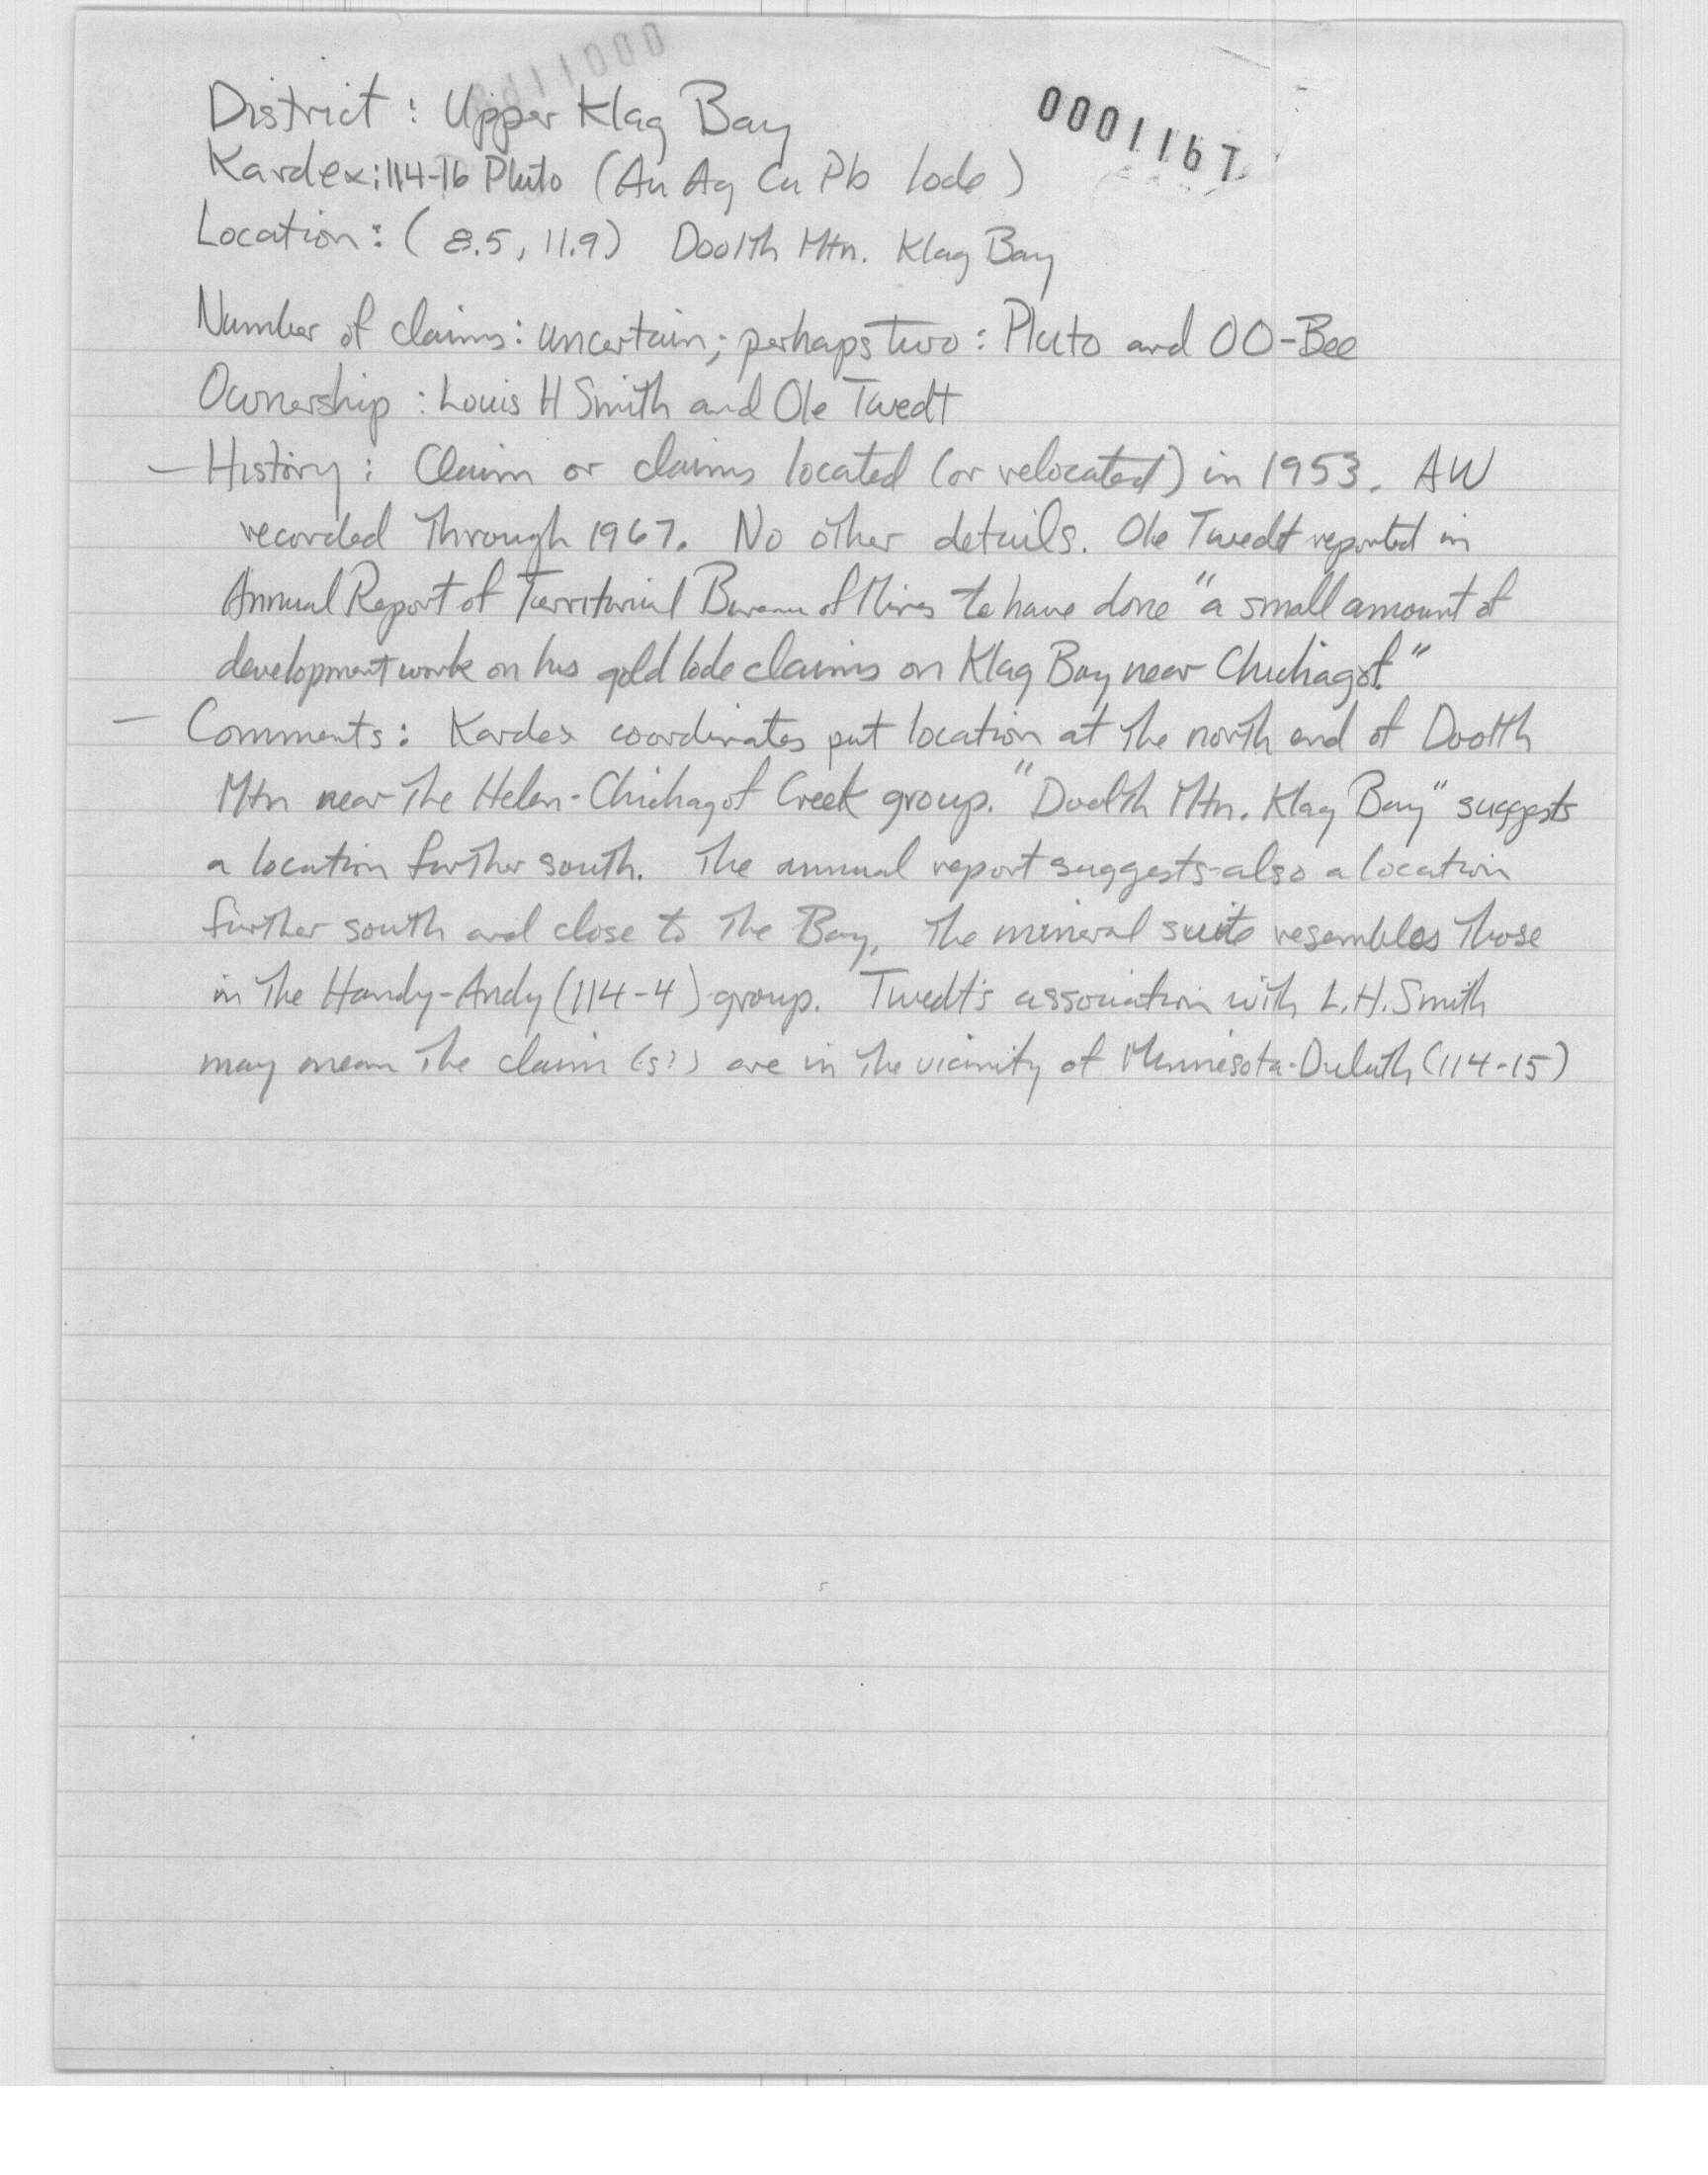 District : Upper Klag Bay
0001167
Kardex: 114-16 Pluto (Au Ag Cu Pb lode)
Location : ( 8.5, 11.9) Doolth Mtn. Klag Bay
Number of claims: uncertain; perhaps two : Pluto and OO-Bee
Ownership : Louis H Smith and Ole Twedt
– History : Claim or claims located (or relocated) in 1953. AW
recorded through 1967. No other details. Ole Twedt reported in
Annual Report of Territorial Bureau of Mines to have done "a small amount of
development work on his gold lode claims on Klag Bay near Chichagof."
– Comments : Kardex coordinates put location at the north end of Doolth
Mtn near the Helen-Chichagof Creek group. "Doolth Mtn. Klag Bay" suggests
a location further south. The annual report suggests also a location
further south and close to the Bay. The mineral suite resembles those
in the Handy-Andy (114-4) group. Twedt's association with L.H. Smith
may mean the claim (s?) are in the vicinity of Minnesota-Duluth (114-15)